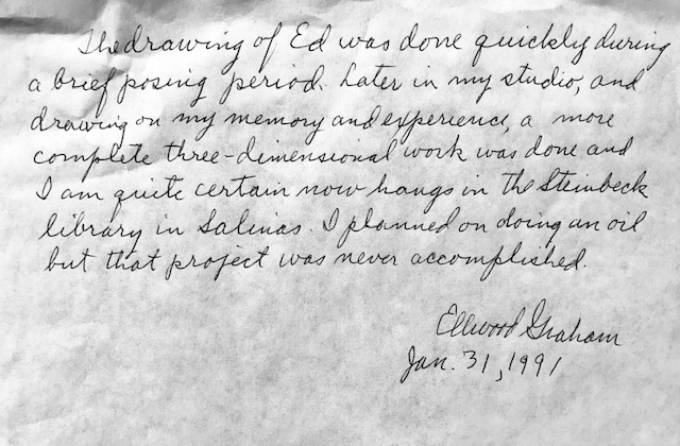 The drawing of Ed was done quickly during
a brief posing period. Later in my studio, and
drawing on my memory and experience, a more
complete three-dimensional work was done and
I am quite certain now hangs in the Steinbeck
library in Salinas. I planned on doing an oil
but that project was never accomplished.
Ellwood Graham
Jan. 31, 1991